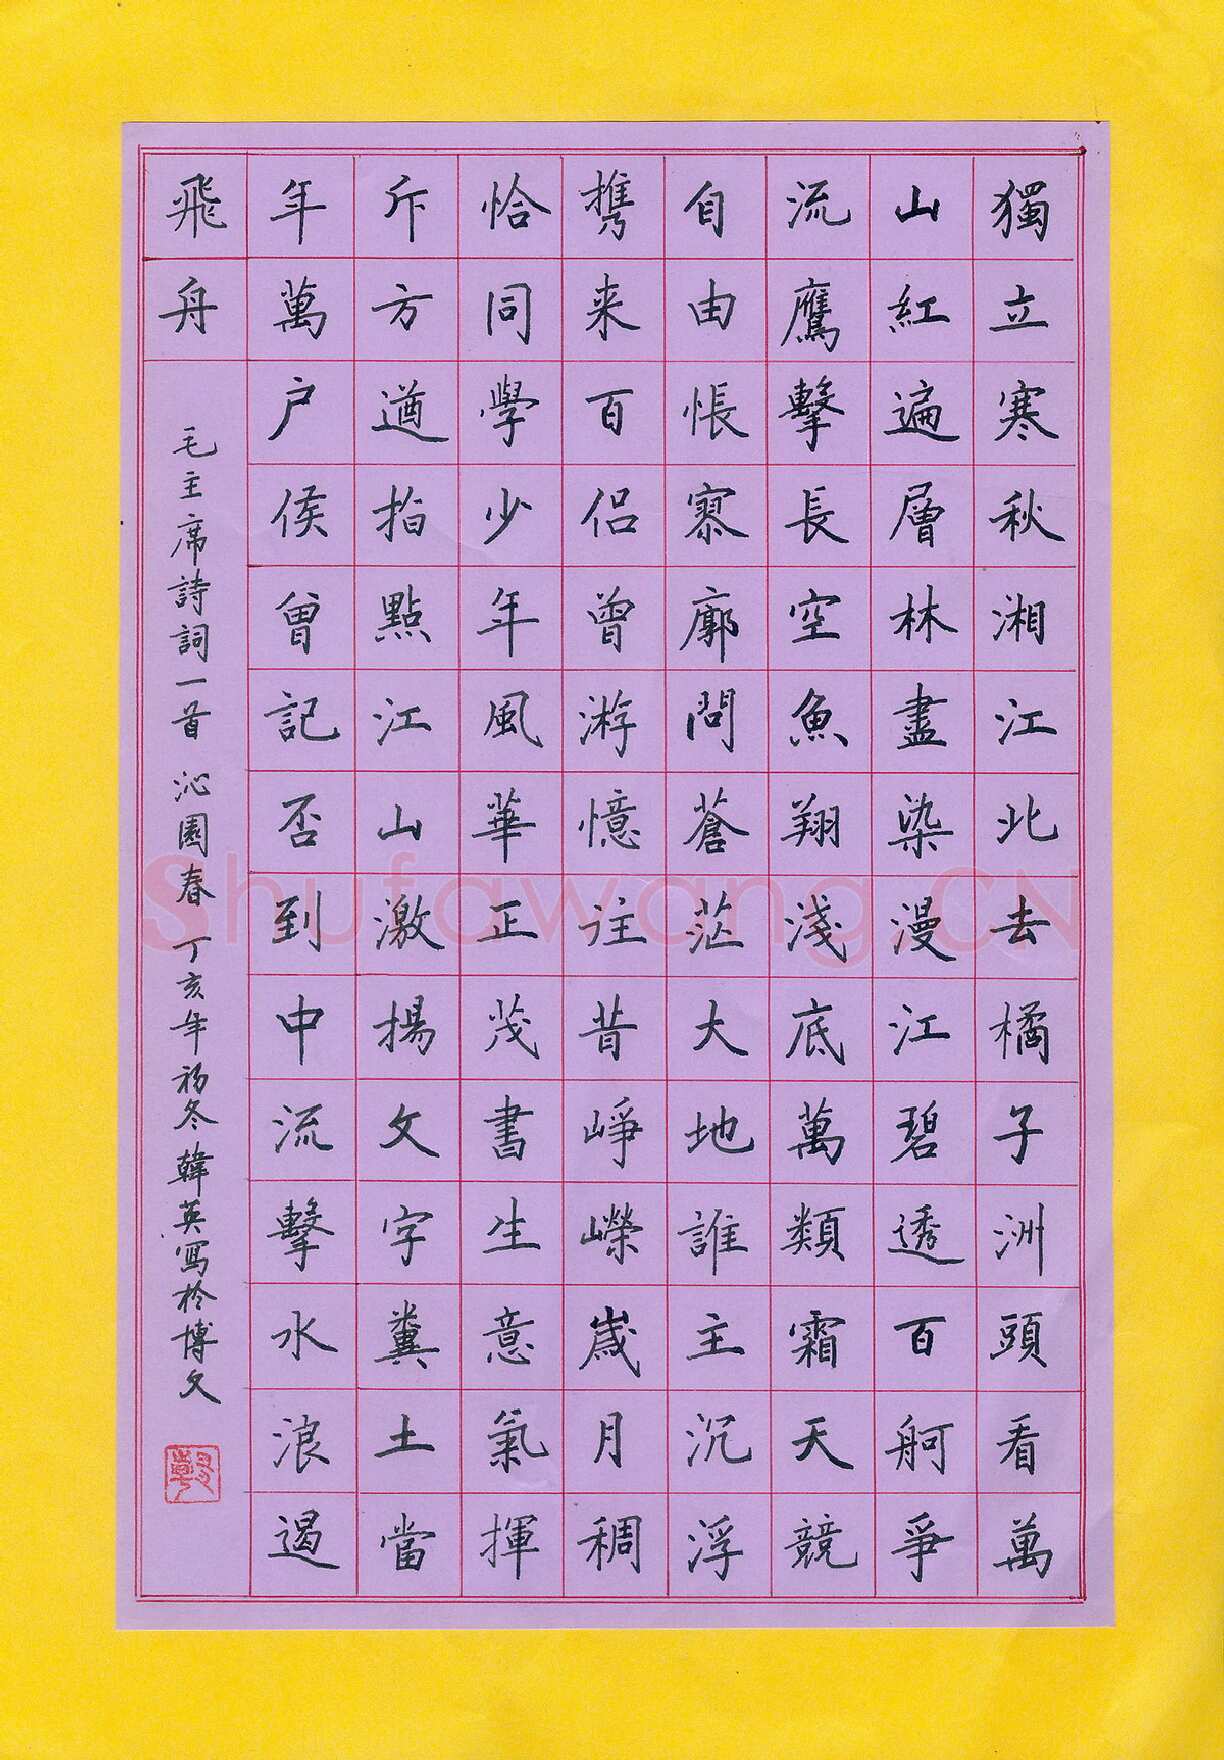 獨立寒秋湘江北去橘子洲頭看萬
山紅遍層林盡染漫江碧透百舸爭
流鷹擊長空魚翔淺底萬類霜天競
自由悵寥廓問蒼茫大地誰主沉浮
携来百侣曾游憶往昔崢嶸歲月稠
恰同學少年風華正茂書生意氣揮
斥方遒指點江山激揚文字糞土當
年萬户侯曾記否到中流擊水浪遏
飛舟
毛主席詩詞一首 沁園春 丁亥年初冬韓英寫於博文
Shufawang.CN